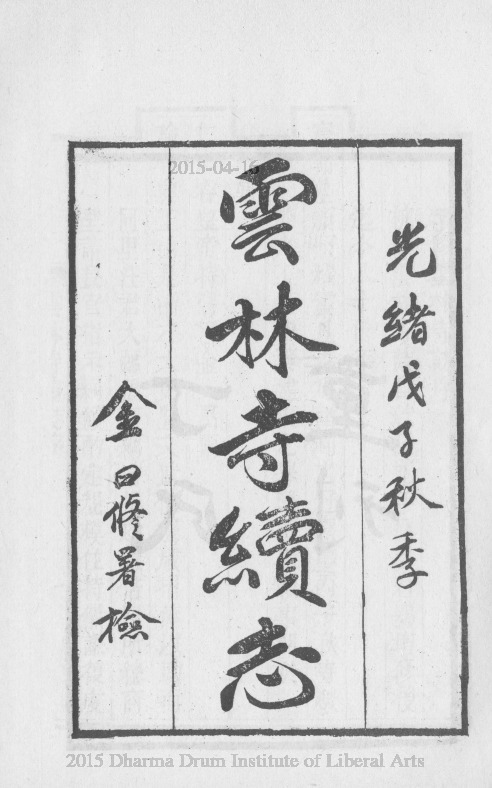 光緒戊子秋季
雲林寺續志
金曰修署檢
2015-04-16
2015 Dharma Drum Institute of Liberal Arts